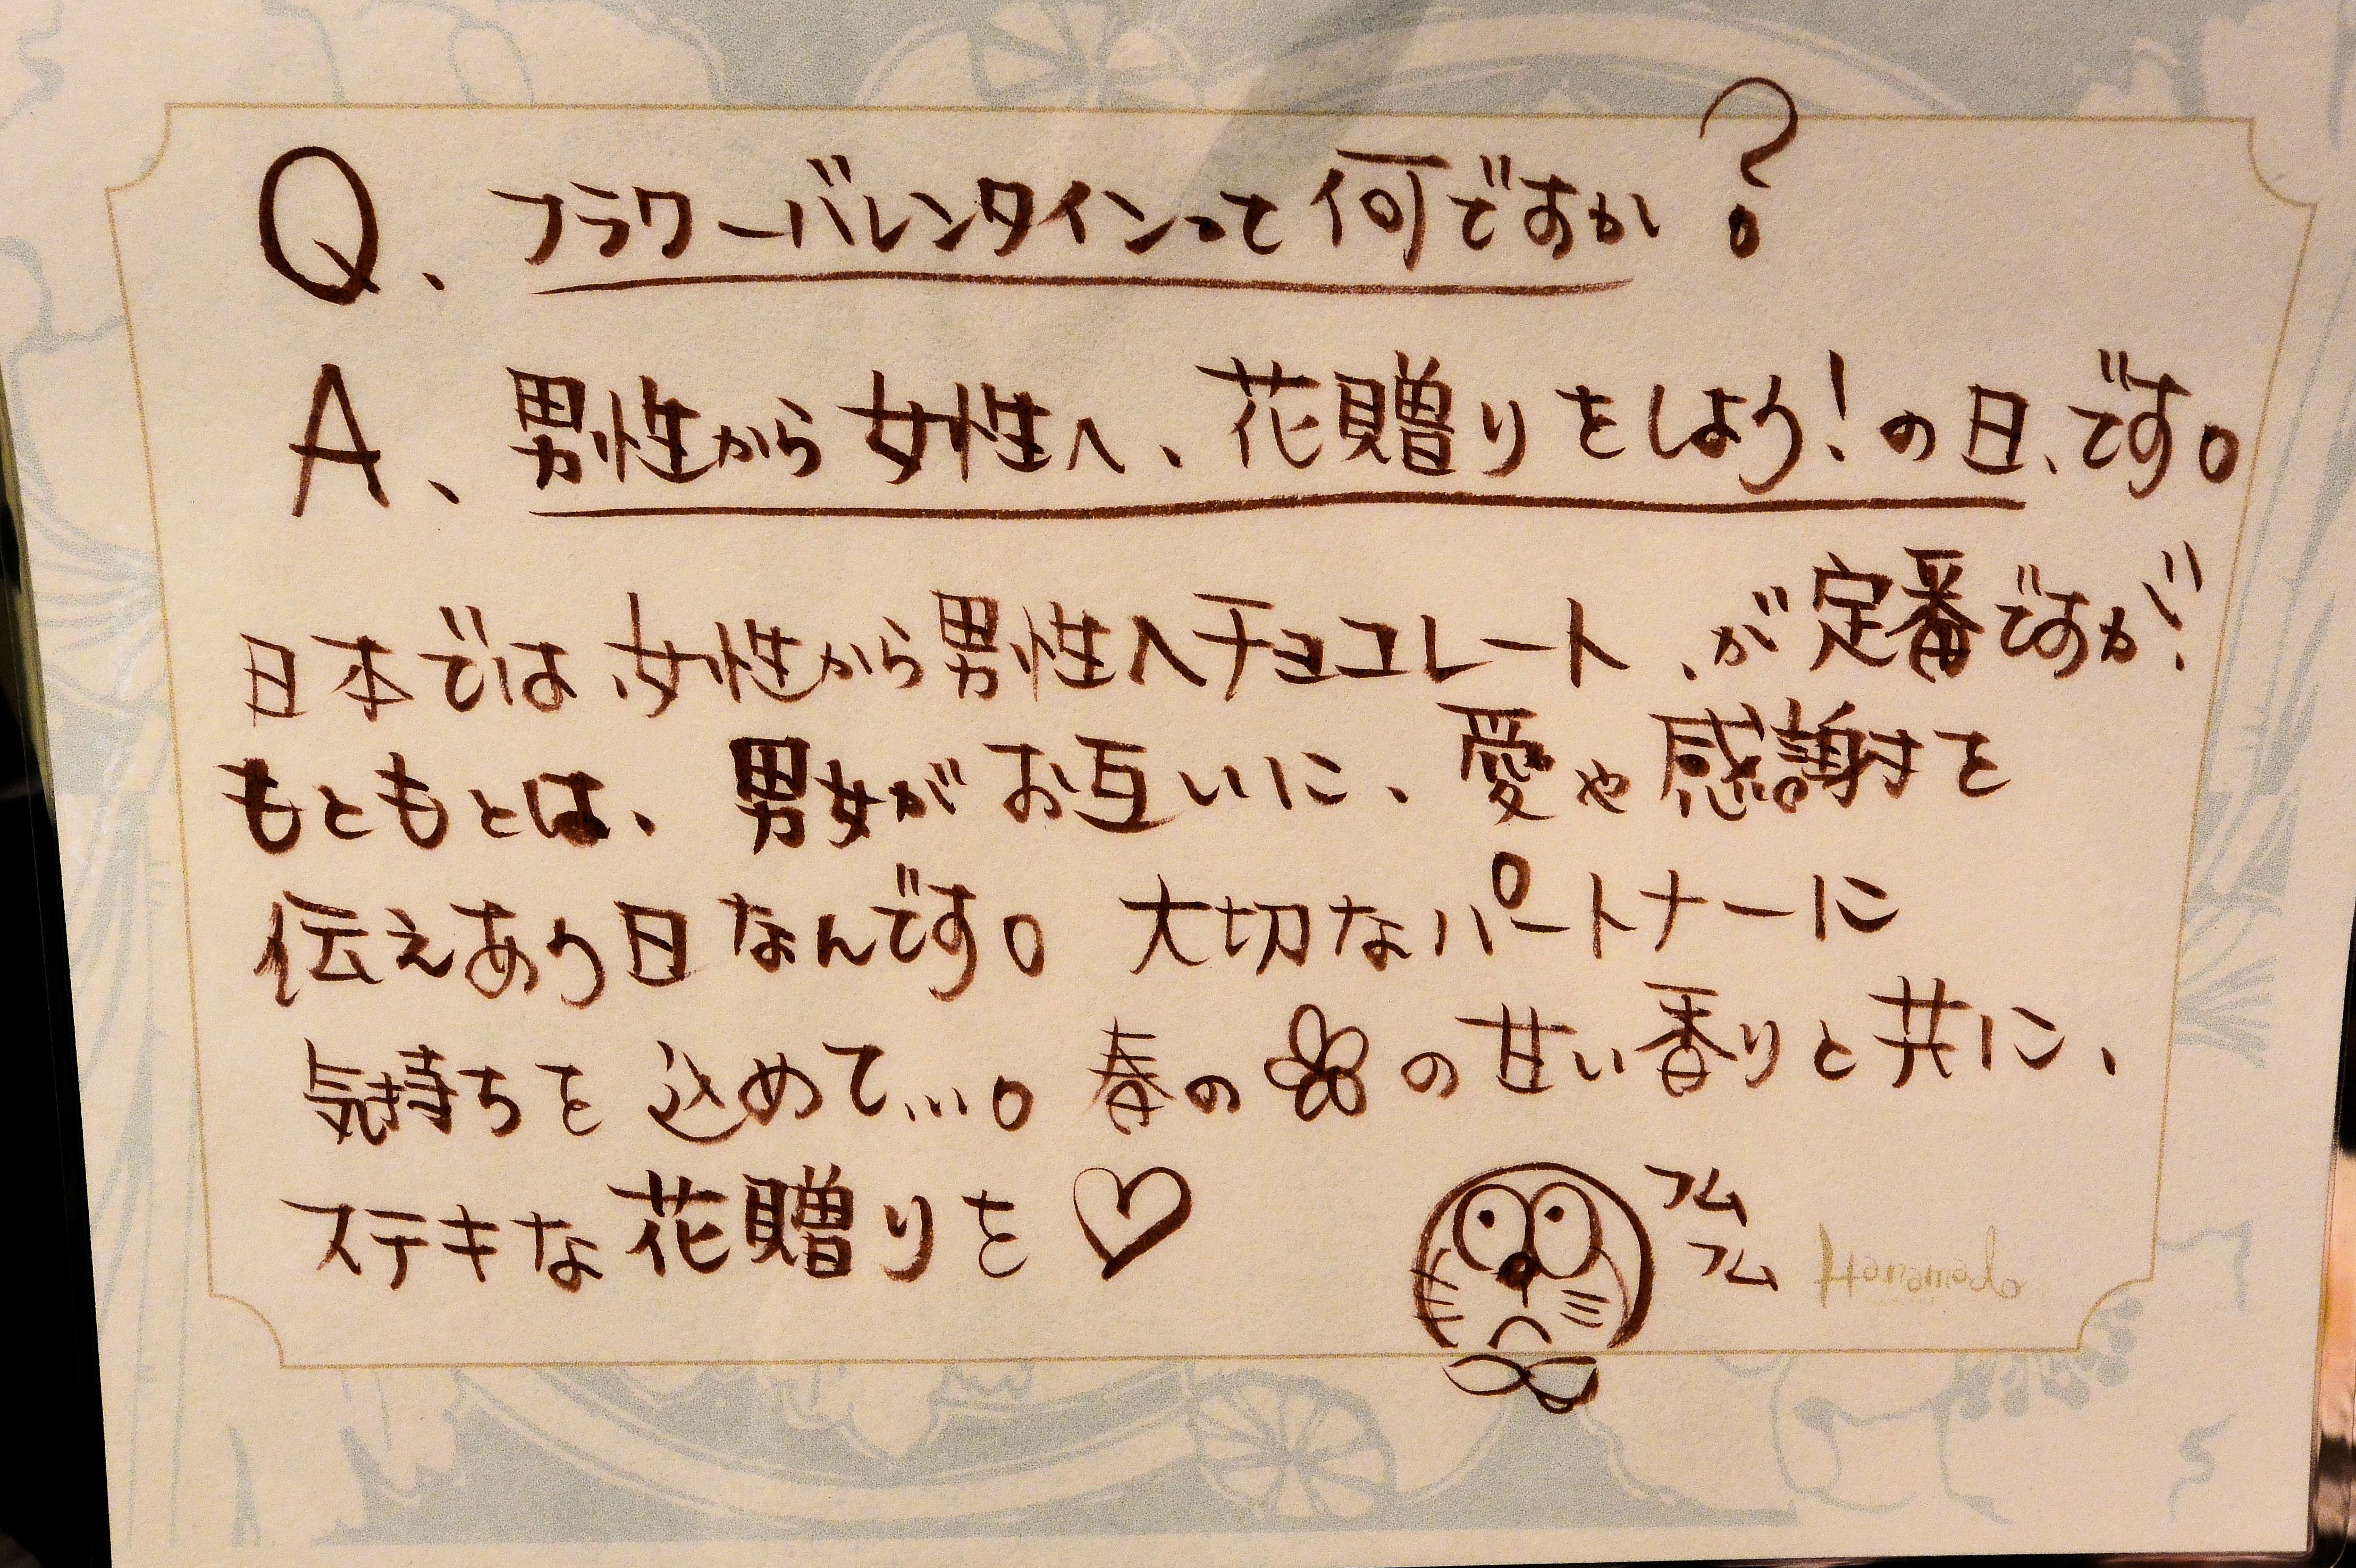 Q、フラワーバレンタインって何ですか?
A、男性から女性へ、花贈りをしよう!の日、です。
日本では、女性から男性へチョコレート、が定番ですが!!
もともとは、男女がお互いに、愛や感謝を
伝えあう日なんです。大切なパートナーに
気持ちを込めて…。春の の甘い香りと共に、
ステキな花贈りを♡
フム
フム